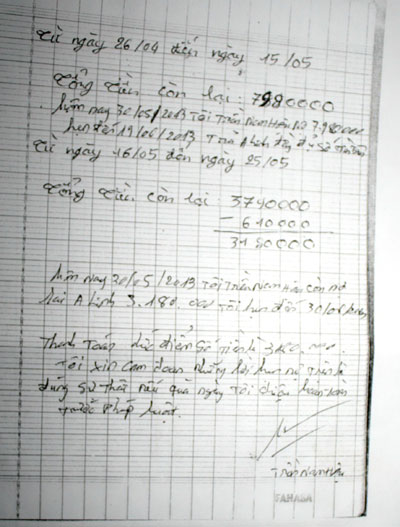 Từ ngày 26/04 đến ngày 15/05
Tổng tiền còn lại : 7980000
Hôm nay 30/05/2013 Tôi Trần Nam Hậu Nợ 7.980.000
hẹn đến 19/06/2013 Trả A Linh đầy đủ số tiền
Từ ngày 16/05 đến ngày 25/05
Tổng tiền còn lại : 3790000
- 610000
3180000
Hôm nay 30/05/2013 Tôi Trần Nam Hậu còn nợ
lại A Linh 3.180.000 Tôi hẹn đến 30/06
Thanh Toán dứt điểm số tiền là
Tôi xin cam đoan những lời hẹn nợ Trên là
đúng sự thật nếu quá ngày tôi
trước Pháp luật.
Trần Nam Hậu
FAHASA